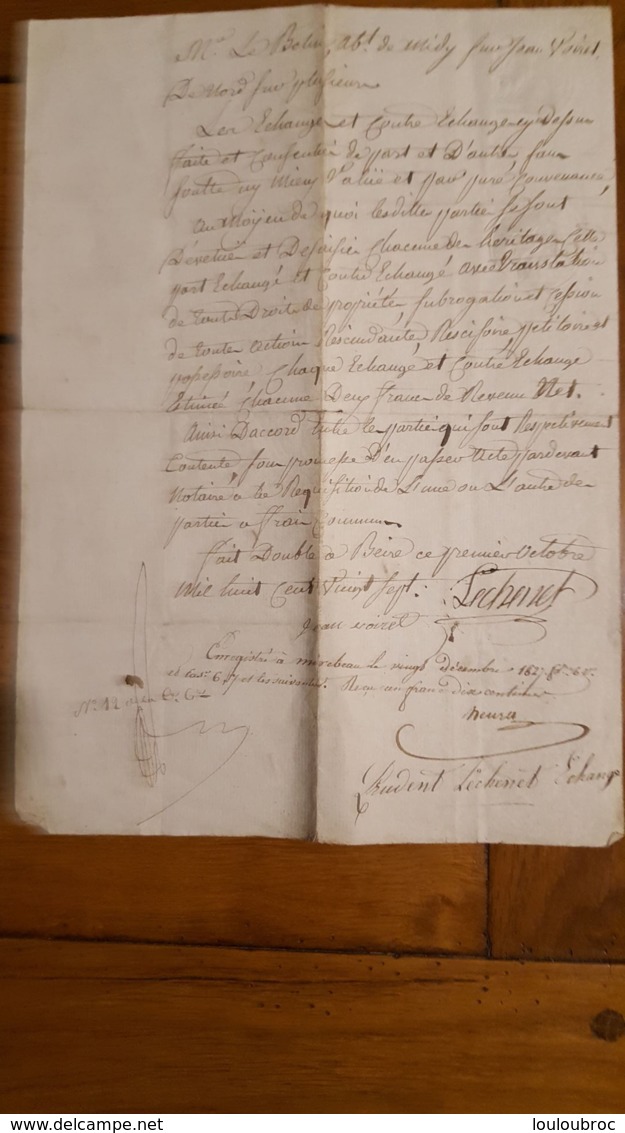 Mr Le Belin, abt. de midy sur Jean Voiret,
De Nord sur plusieurs
Les Echange et Contre Echange cy dessus
faite et Consentie de part et D'autre sans
soulte ny Mieux value et par pure Convenance,
au Moyen de quoi lesditte partie se sont
Dévetue et Desaisie Chacune des heritage Cette
part Echangé et Contre Echangé avec translation
de tout Droits de propriétée subrogation et cession
de toute action Rescindante Rescisoire petitoire et
possessoire Chaque Echange et Contre Echange
Estimé Chacune Deux franc de Revenu Net.
ainsi D'accord Entre le partie qui sont Respetivement
Contente sous promesse D'en passer acte pardevant
Notaire à la Requisition de L'une ou L'autre des
partie a frais Commun
fait Double a Beire ce premier octobre
Mil huit Cent Vingt sept. Lechenet
Jean voiret
Enregistré à mirebeau le vingt décembre 1827 fo. 60.
et les suivantes. Reçu un franc dix centimes
Prudent Lechenet Echange
louloubroc